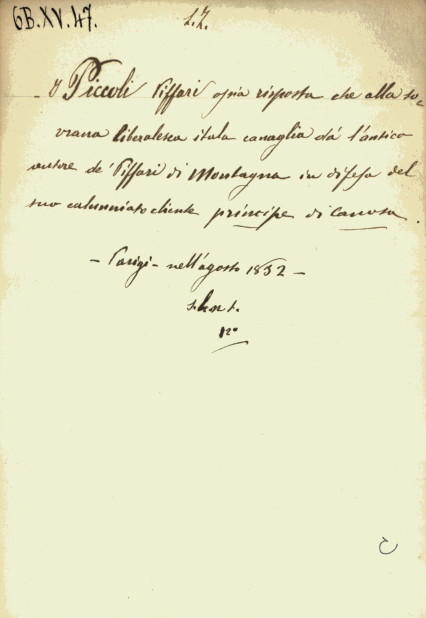 6B.XV.47.
I Piccoli Piffari ossia risposta che alla so=
vrana liberalesca itala canaglia dà l'antico
autore de' Piffari di Montagna in difesa del
suo calunniato cliente principe di Canosa.
– Parigi – nell'agosto 1832 –
12°